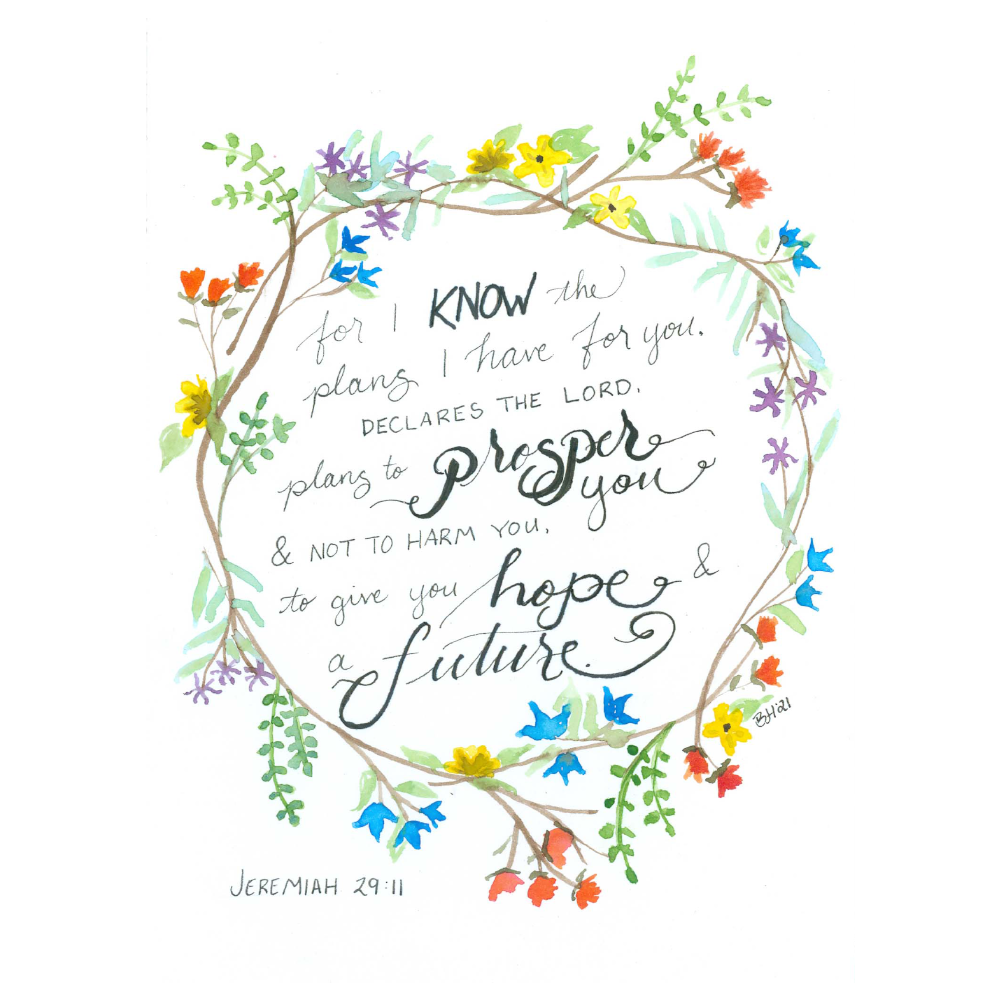 for I KNOW the
plans I have for you.
DECLARES THE LORD.
plans to prosper
you
& NOT TO HARM YOU,
to give you hope &
a future.
BH '21
JEREMIAH 29:11